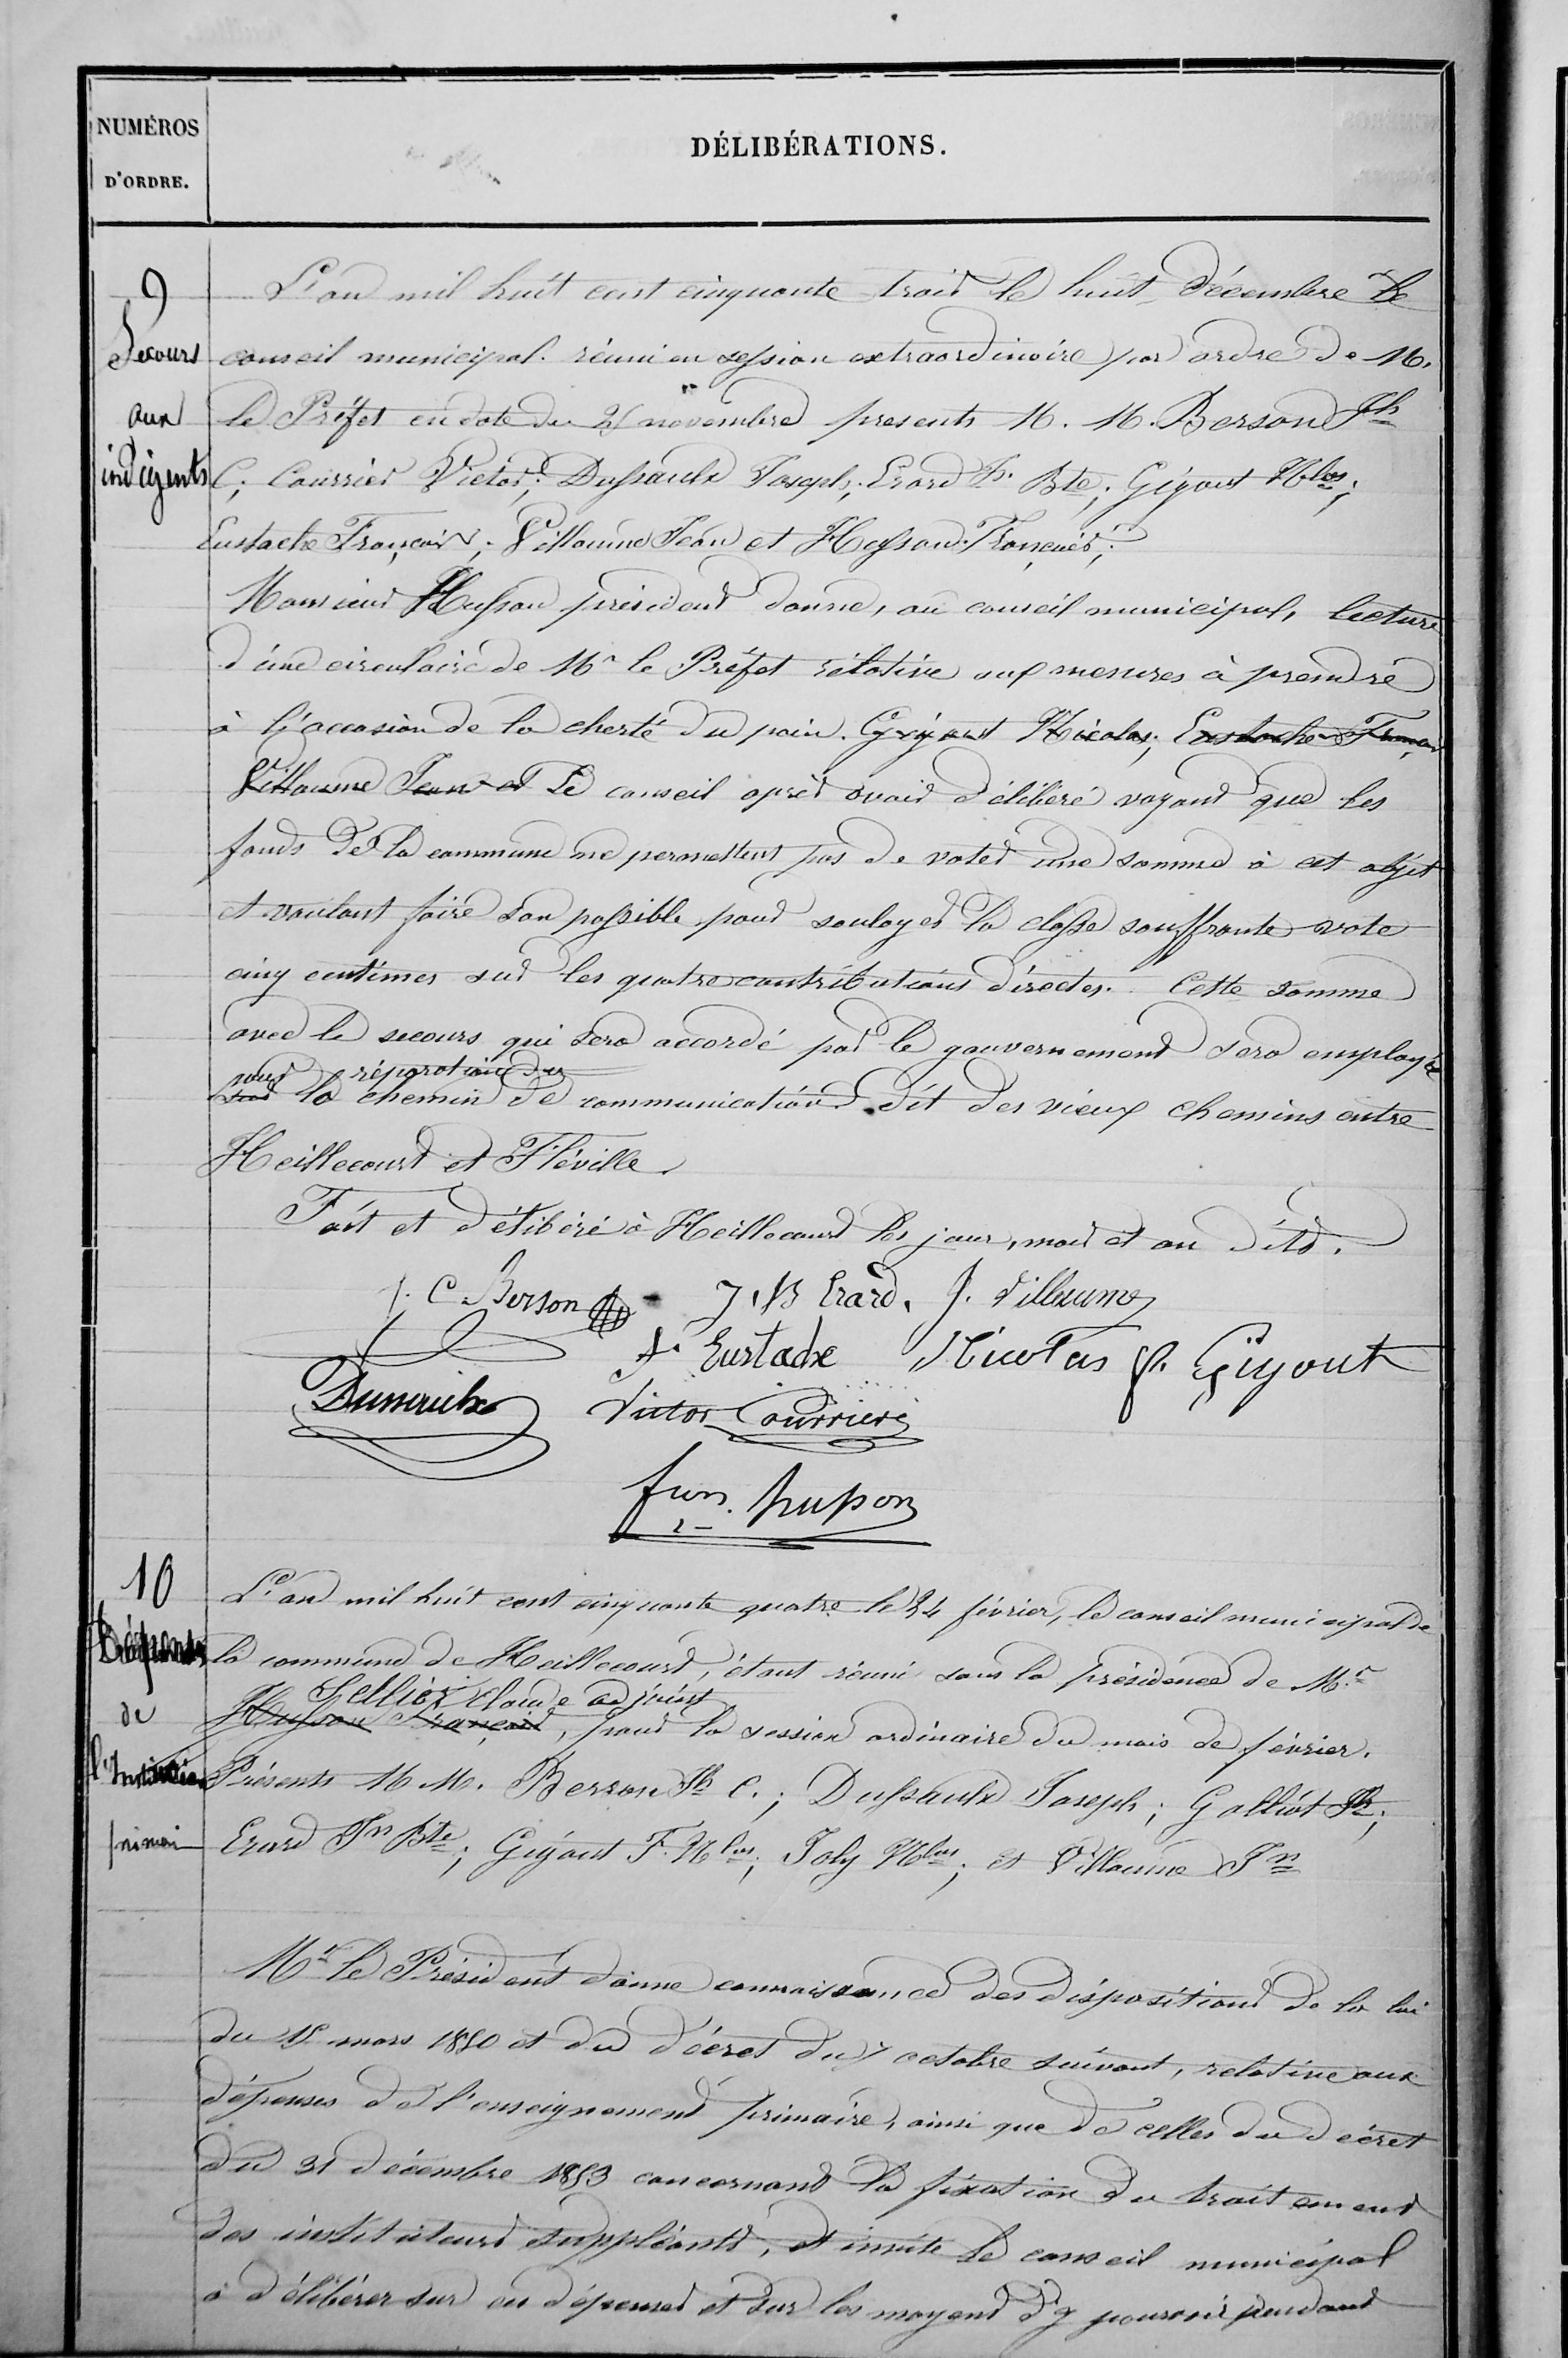 NUMÉROS
D'ORDRE.
DÉLIBÉRATIONS.
9
Secours
aux
indigents
L'an mil huit cent cinquante trois le huit décembre le
conseil municipal réuni en session extraordinaire par ordre de M.
le Préfet en date du novembre presents M. M. Berson Jh
C; Courrier Victor; Dussaulx Joseph; Erard Jn Bte; Gigout Nlas;
Eustache François; Villaume Jean et Husson François;
Monsieur Husson président donne, au conseil municipal, lecture
d'une circulaire de Mr le Préfet rélative aux mesures à prendre
à l'occasion de la cherté du pain. Gigout Nicolas; Eustache François
Villaume Jean et Le conseil après avoir délibéré voyant que les
fonds de la commune ne permettent pas de voter une somme à cet objet
et voulant faire son possible pour soulager la classe souffrante vote
cinq centimes sur les quatre contributions directes. Cette somme
avec le secours qui sera accordé par le gouvernement sera employée
pour réparation du
sur la chemin de communication dit des vieux chemins entre
Heillecourt et Fléville.
Fait et délibéré à Heillecourt les jour, mois et an dits.
J. C. Berson J. B Erard. J. Villaume
f. Eustache Nicolas f. Gigout
Dussaulx Victor Courrier
fran. husson
10
Dépenses
de
l'Instruction
primai
L'an mil huit cent cinquante quatre le 24 février, le conseil municipal de
la commune de Heillecourt, étant réuni sous la présidence de Mr
Sellier Claude adjoint
Husson François, pour la session ordinaire du mois de février.
Présents M M. Berson Jh C.; Dussaulx Joseph; Galliot Jh;
Erard Jn Bte; Gigout F. Nlas; Joly Nlas; et Villaume Jn
Mr le Président donne connaissance des dispositions de la loi
du 15 mars 1850 et du décret du 7 octobre suivant, relative aux
dépenses de l'enseignement primaire, ainsi que de celles du décret
du 31 décembre 1853 concernant la fixation du traitement
des instituteurs suppléants, et invite le conseil municipal
à délibérer sur ces dépenses et sur les moyens d'y pourvoir pendant